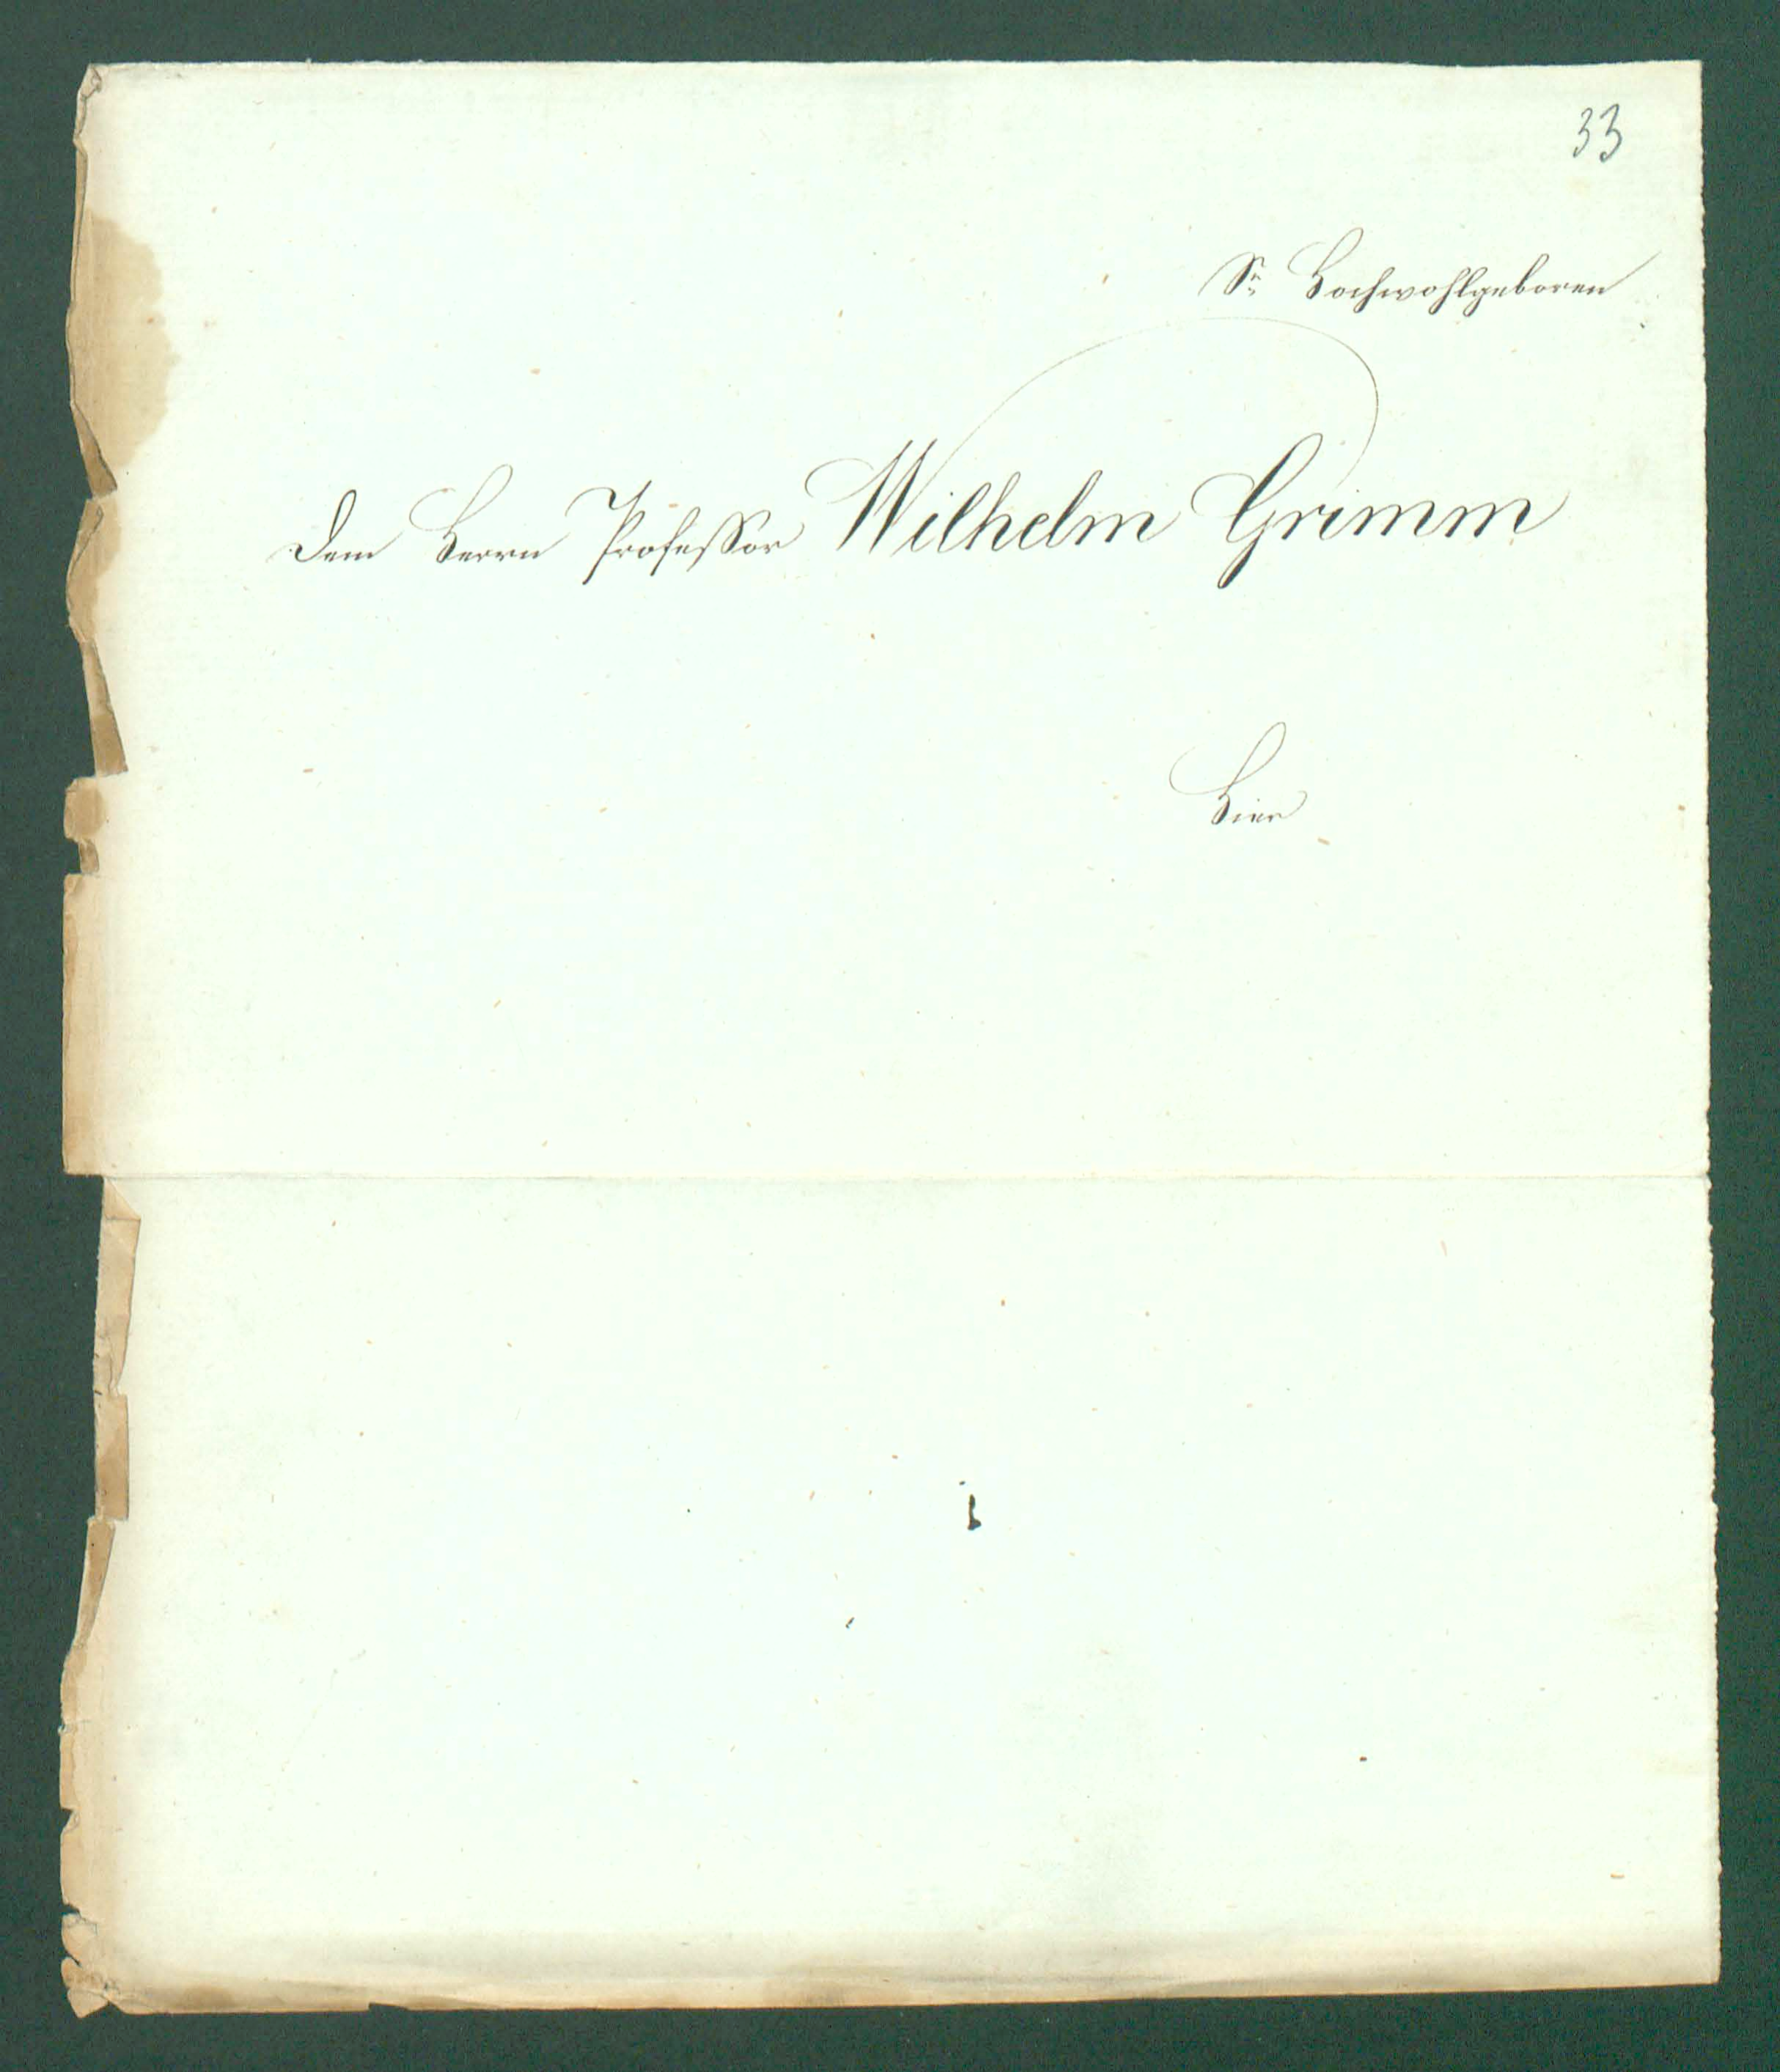 33
Sr. Hochwohlgeboren
Dem Herrn Professor Wilhelm Grimm
Hier